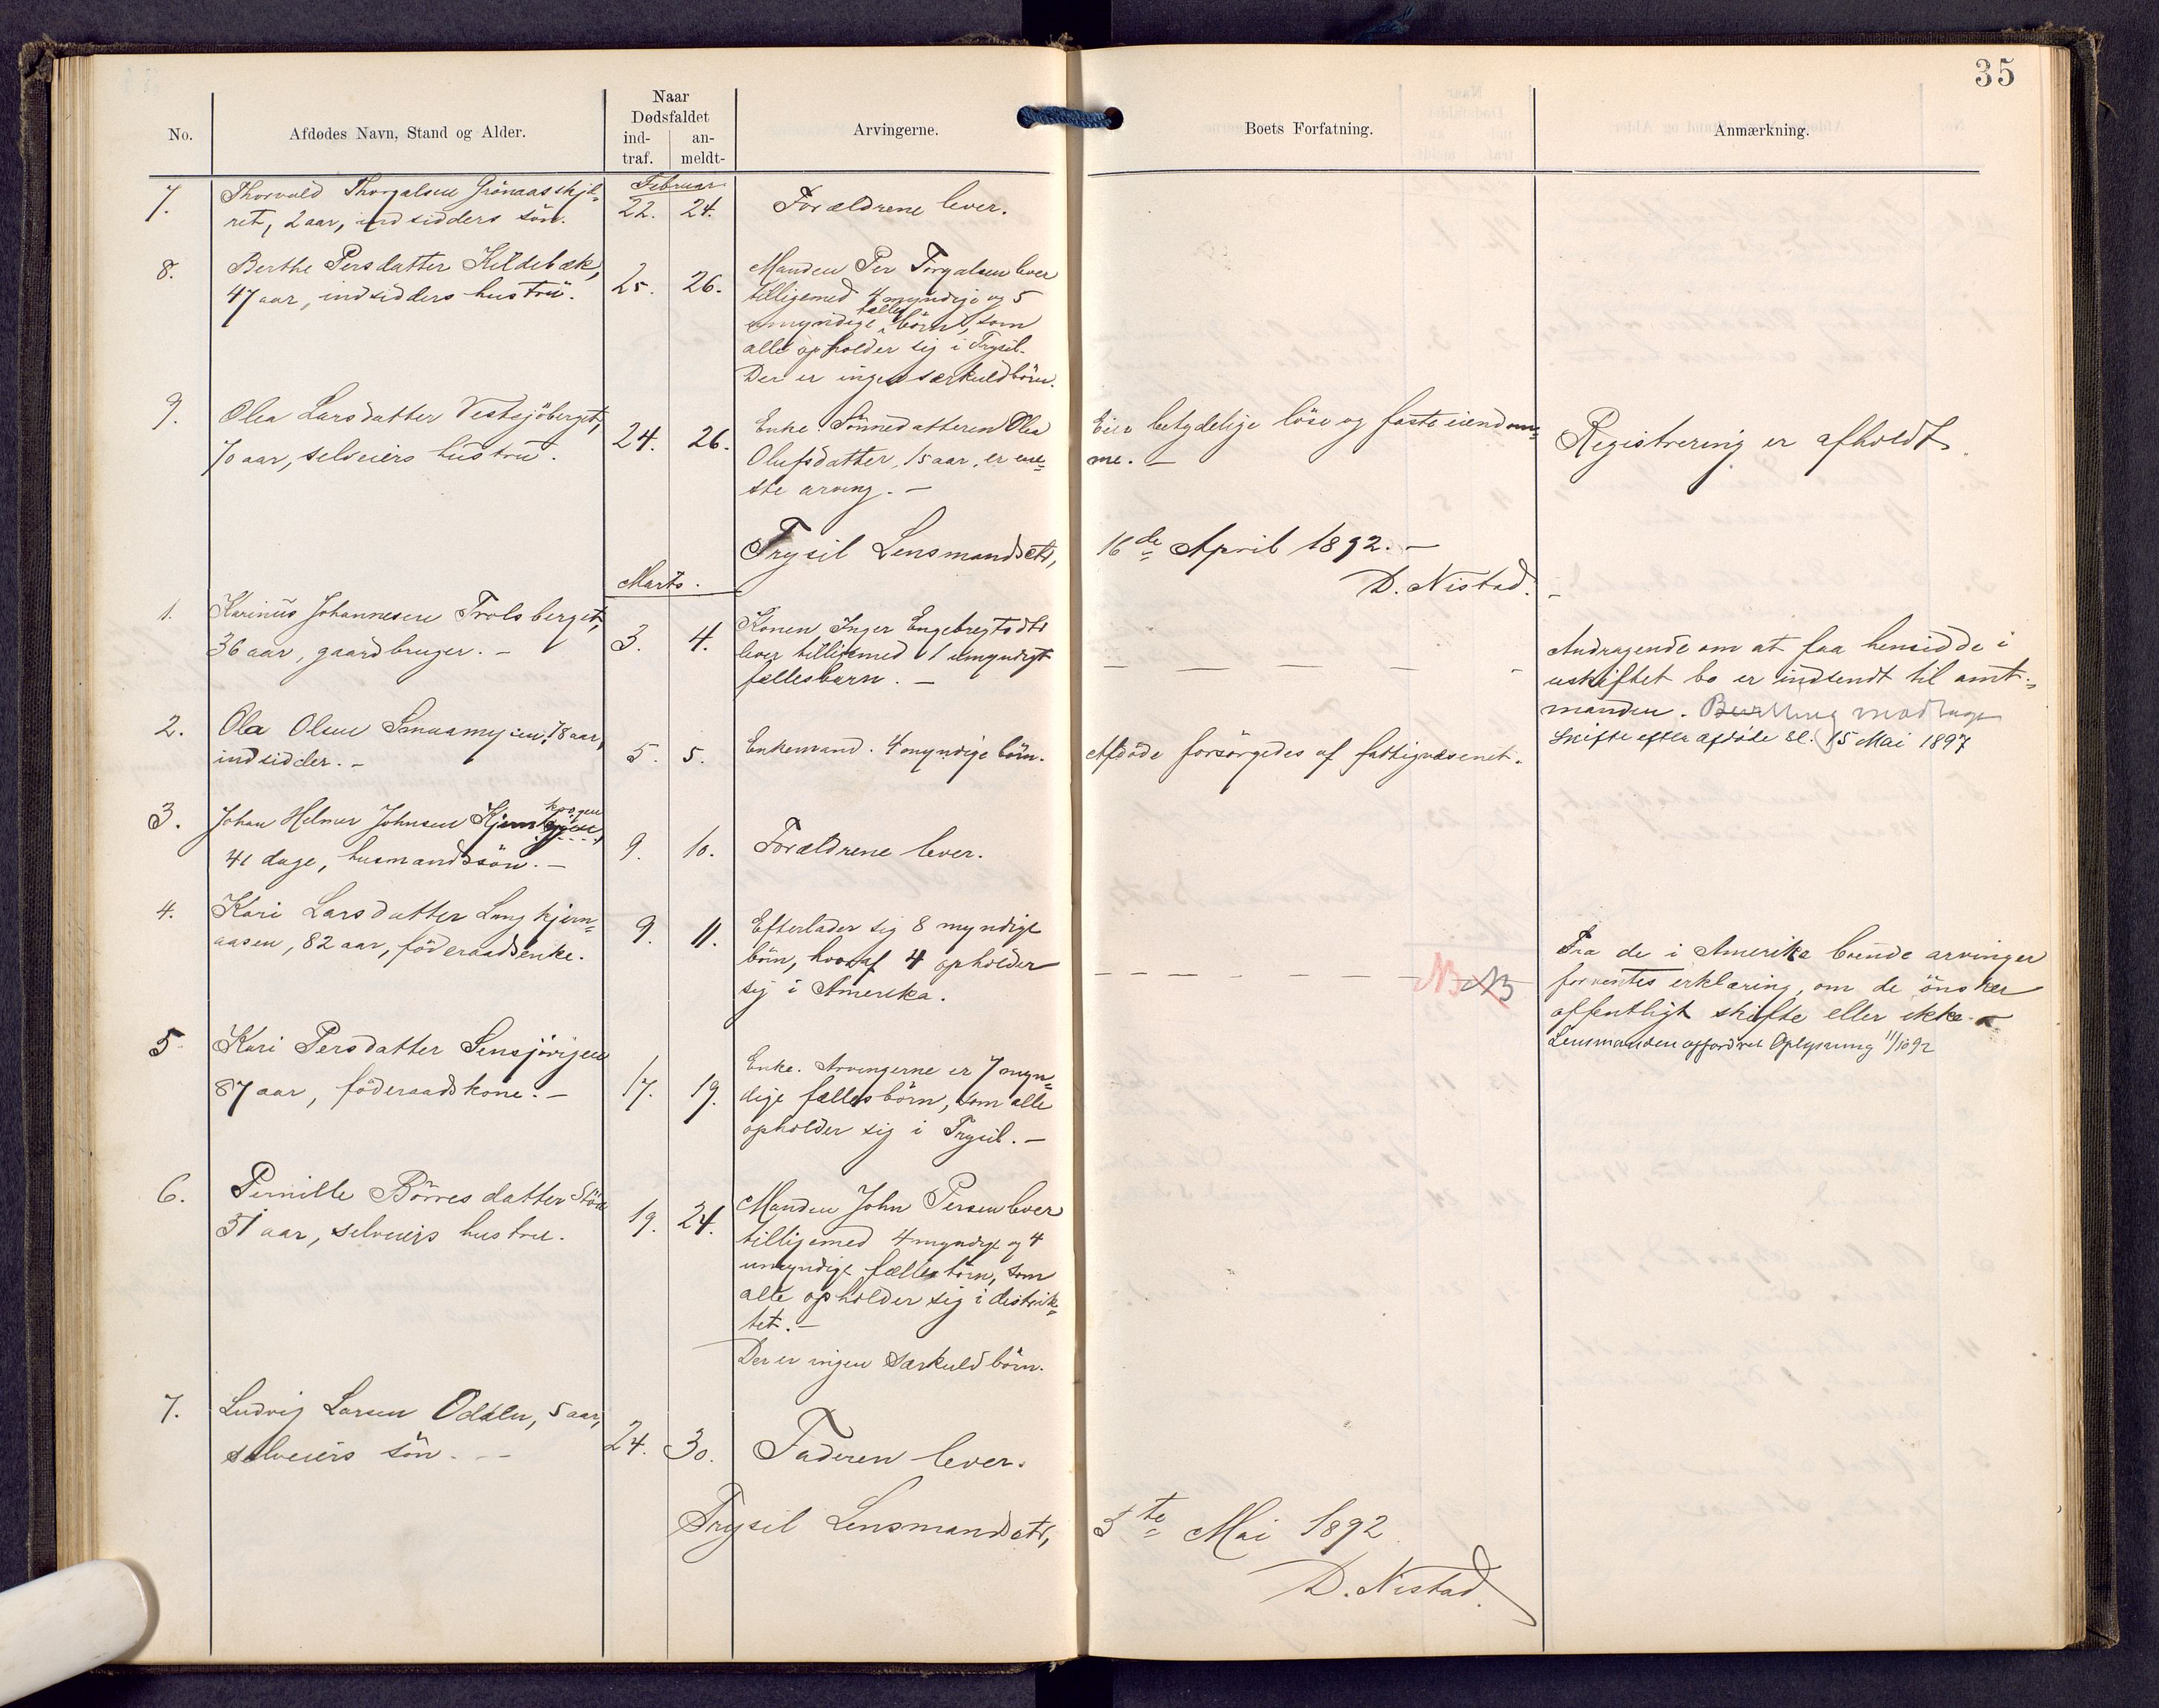 35
No.
Afdødes Navn, Stand og Alder.
Naar
Dødsfaldet
ind-
traf.
an-
meldt-
Arvingerne.
Boets Forfatning.
Anmærkning.
Februar
7.
Thorvald Thorgalsen Grönaasskjæ-
ret, 2 aar, indsidders sön.
22. 24.
Forældrene lever.
8.
Berthe Persdatter Kildebæk,
47 aar, indsidders hustru.
25. 26.
Manden Per Torgalsen lever
tilligemed 4 myndige og 5
umyndige fælles börn, som
alle opholder sig i Trysil.
Der er ingen særkuldbörn.
9.
Olea Larsdatter Vestsjöberget,
70 aar, selveiers hustru.
24. 26.
Enke. Sönnedatteren Olea
Olufsdatter, 15 aar, er ene-
ste arving. —
Eier betydelige löse og faste eiendom-
me. —
Registrering er afholdt.
Trysil Lensmandsct, 16de April 1892. —
D. Nistad.
Marts.
1.
Karinus Johannesen Trolsberget,
36 aar, gaardbruger. —
3. 4.
Konen Inger Engebregtsdtr
lever tilligemed 1 umyndigt
fællesbarn. —
— — — —
Andragende om at faa hensidde i
uskiftet bo er indsendt til amt-
manden. Bevilling modtage
Skifte efter afdöde sl. 15 Mai 1897
2.
Ola Olsen 78 aar,
indsidder. —
5. 5.
Enkemand. 4 myndige börn.
Afdöde forsörgedes af fattigvæsenet.
3.
Johan Helmer Johnsen
41 dage, husmandssön. —
9. 10.
Forældrene lever.
4.
Kari Larsdatter Langkjern-
aasen, 82 aar, föderaadsenke.
9. 11.
Efterlader sig 8 myndige
börn, hvoraf 4 opholder
sig i Amerika.
— — — — — — NB NB
Fra de i Amerika boende arvinger
forventes erklæring, om de önsker
offentligt skifte eller ikke. —
Lensmanden affordret Oplysning 11/10 92
5
Kari Persdatter Sensjövigen
87 aar, föderaadskone. —
17. 19.
Enke. Arvingerne er 7 myn-
dige fællesbörn, som alle
opholder sig i Trysil. —
6.
Pernille Börresdatter
51 aar, selveiers hustru.
19. 24.
Manden John Persen lever
tilligemed 4 myndige og 4
umyndige fællesbörn, som
alle opholder sig i distrik-
tet. —
Der er ingen særkuldbörn.
7.
Ludvig Larsen Odden, 5 aar,
selveiers sön. —
24. 30.
Faderen lever.
Trysil Lensmandsct, 5te Mai 1892.
D. Nistad.